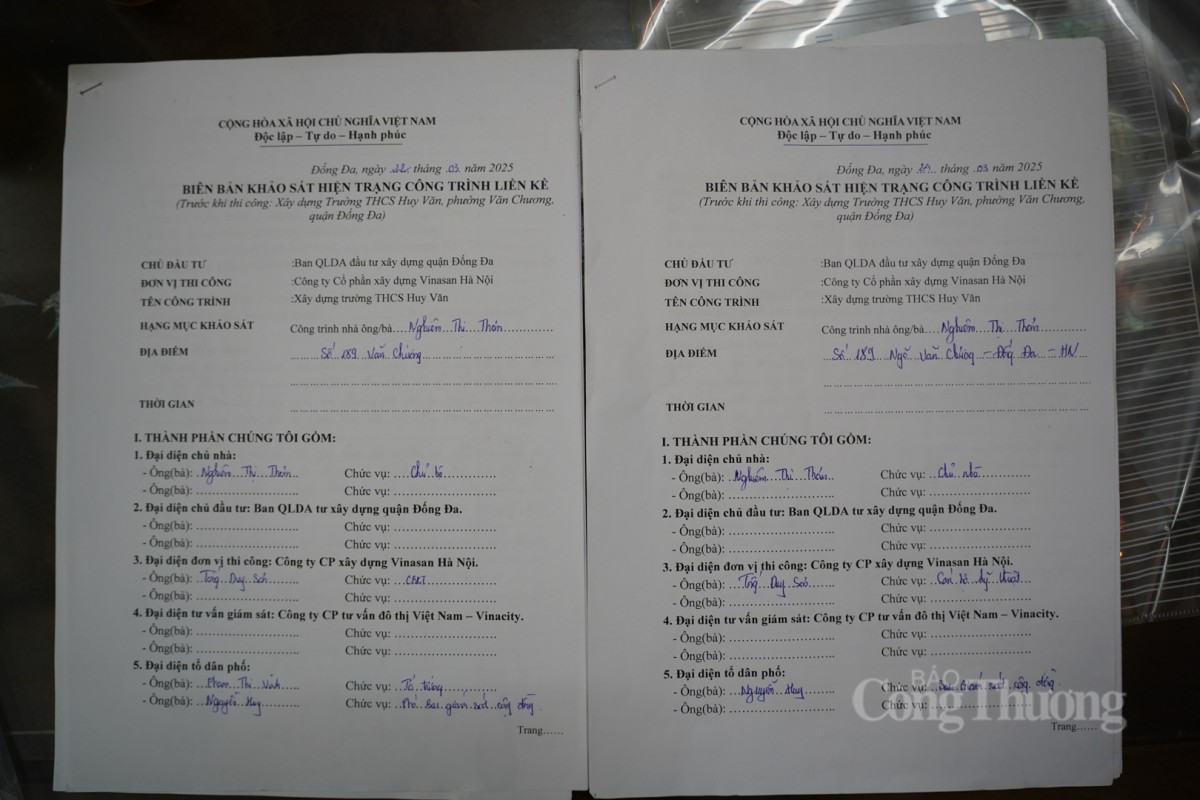 CỘNG HÒA XÃ HỘI CHỦ NGHĨA VIỆT NAM
Độc lập – Tự do – Hạnh phúc
Đống Đa, ngày 22 tháng 03 năm 2025
BIÊN BẢN KHẢO SÁT HIỆN TRẠNG CÔNG TRÌNH LIỀN KỀ
(Trước khi thi công: Xây dựng Trường THCS Huy Văn, phường Văn Chương,
quận Đống Đa)
CHỦ ĐẦU TƯ :Ban QLDA đầu tư xây dựng quận Đống Đa
ĐƠN VỊ THI CÔNG :Công ty Cổ phần xây dựng Vinasan Hà Nội
TÊN CÔNG TRÌNH :Xây dựng trường THCS Huy Văn
HẠNG MỤC KHẢO SÁT Công trình nhà ông/bà Nghiêm Thị
ĐỊA ĐIỂM Số 189 Văn Chương
THỜI GIAN
I. THÀNH PHẦN CHÚNG TÔI GỒM:
1. Đại diện chủ nhà:
- Ông(bà): Nghiêm Thị Chức vụ: Chủ
- Ông(bà): Chức vụ:
2. Đại diện chủ đầu tư: Ban QLDA tư xây dựng quận Đống Đa.
- Ông(bà): Chức vụ:
- Ông(bà): Chức vụ:
3. Đại diện đơn vị thi công: Công ty CP xây dựng Vinasan Hà Nội.
- Ông(bà): Duy Chức vụ: CBKT
- Ông(bà): Chức vụ:
4. Đại diện tư vấn giám sát: Công ty CP tư vấn đô thị Việt Nam – Vinacity.
- Ông(bà): Chức vụ:
- Ông(bà): Chức vụ:
5. Đại diện tổ dân phố:
- Ông(bà): Phạm Thị Chức vụ: Tổ trưởng
- Ông(bà): Nguyễn Huy Chức vụ: Phó Ban giám sát cộng đồng
Trang......
CỘNG HÒA XÃ HỘI CHỦ NGHĨA VIỆT NAM
Độc lập – Tự do – Hạnh phúc
Đống Đa, ngày tháng 03 năm 2025
BIÊN BẢN KHẢO SÁT HIỆN TRẠNG CÔNG TRÌNH LIỀN KỀ
(Trước khi thi công: Xây dựng Trường THCS Huy Văn, phường Văn Chương,
quận Đống Đa)
CHỦ ĐẦU TƯ :Ban QLDA đầu tư xây dựng quận Đống Đa
ĐƠN VỊ THI CÔNG :Công ty Cổ phần xây dựng Vinasan Hà Nội
TÊN CÔNG TRÌNH :Xây dựng trường THCS Huy Văn
HẠNG MỤC KHẢO SÁT Công trình nhà ông/bà Nghiêm Thị
ĐỊA ĐIỂM Số 189 Ngõ Văn Chương – Đống Đa – HN
THỜI GIAN
I. THÀNH PHẦN CHÚNG TÔI GỒM:
1. Đại diện chủ nhà:
- Ông(bà): Nghiêm Thị Chức vụ: Chủ nhà
- Ông(bà): Chức vụ:
2. Đại diện chủ đầu tư: Ban QLDA tư xây dựng quận Đống Đa.
- Ông(bà): Chức vụ:
- Ông(bà): Chức vụ:
3. Đại diện đơn vị thi công: Công ty CP xây dựng Vinasan Hà Nội.
- Ông(bà): Duy Chức vụ: Cán bộ kỹ thuật
- Ông(bà): Chức vụ:
4. Đại diện tư vấn giám sát: Công ty CP tư vấn đô thị Việt Nam – Vinacity.
- Ông(bà): Chức vụ:
- Ông(bà): Chức vụ:
5. Đại diện tổ dân phố:
- Ông(bà): Nguyễn Huy Chức vụ: giám sát cộng đồng
- Ông(bà): Chức vụ:
Trang......
BÁO
Công Thương